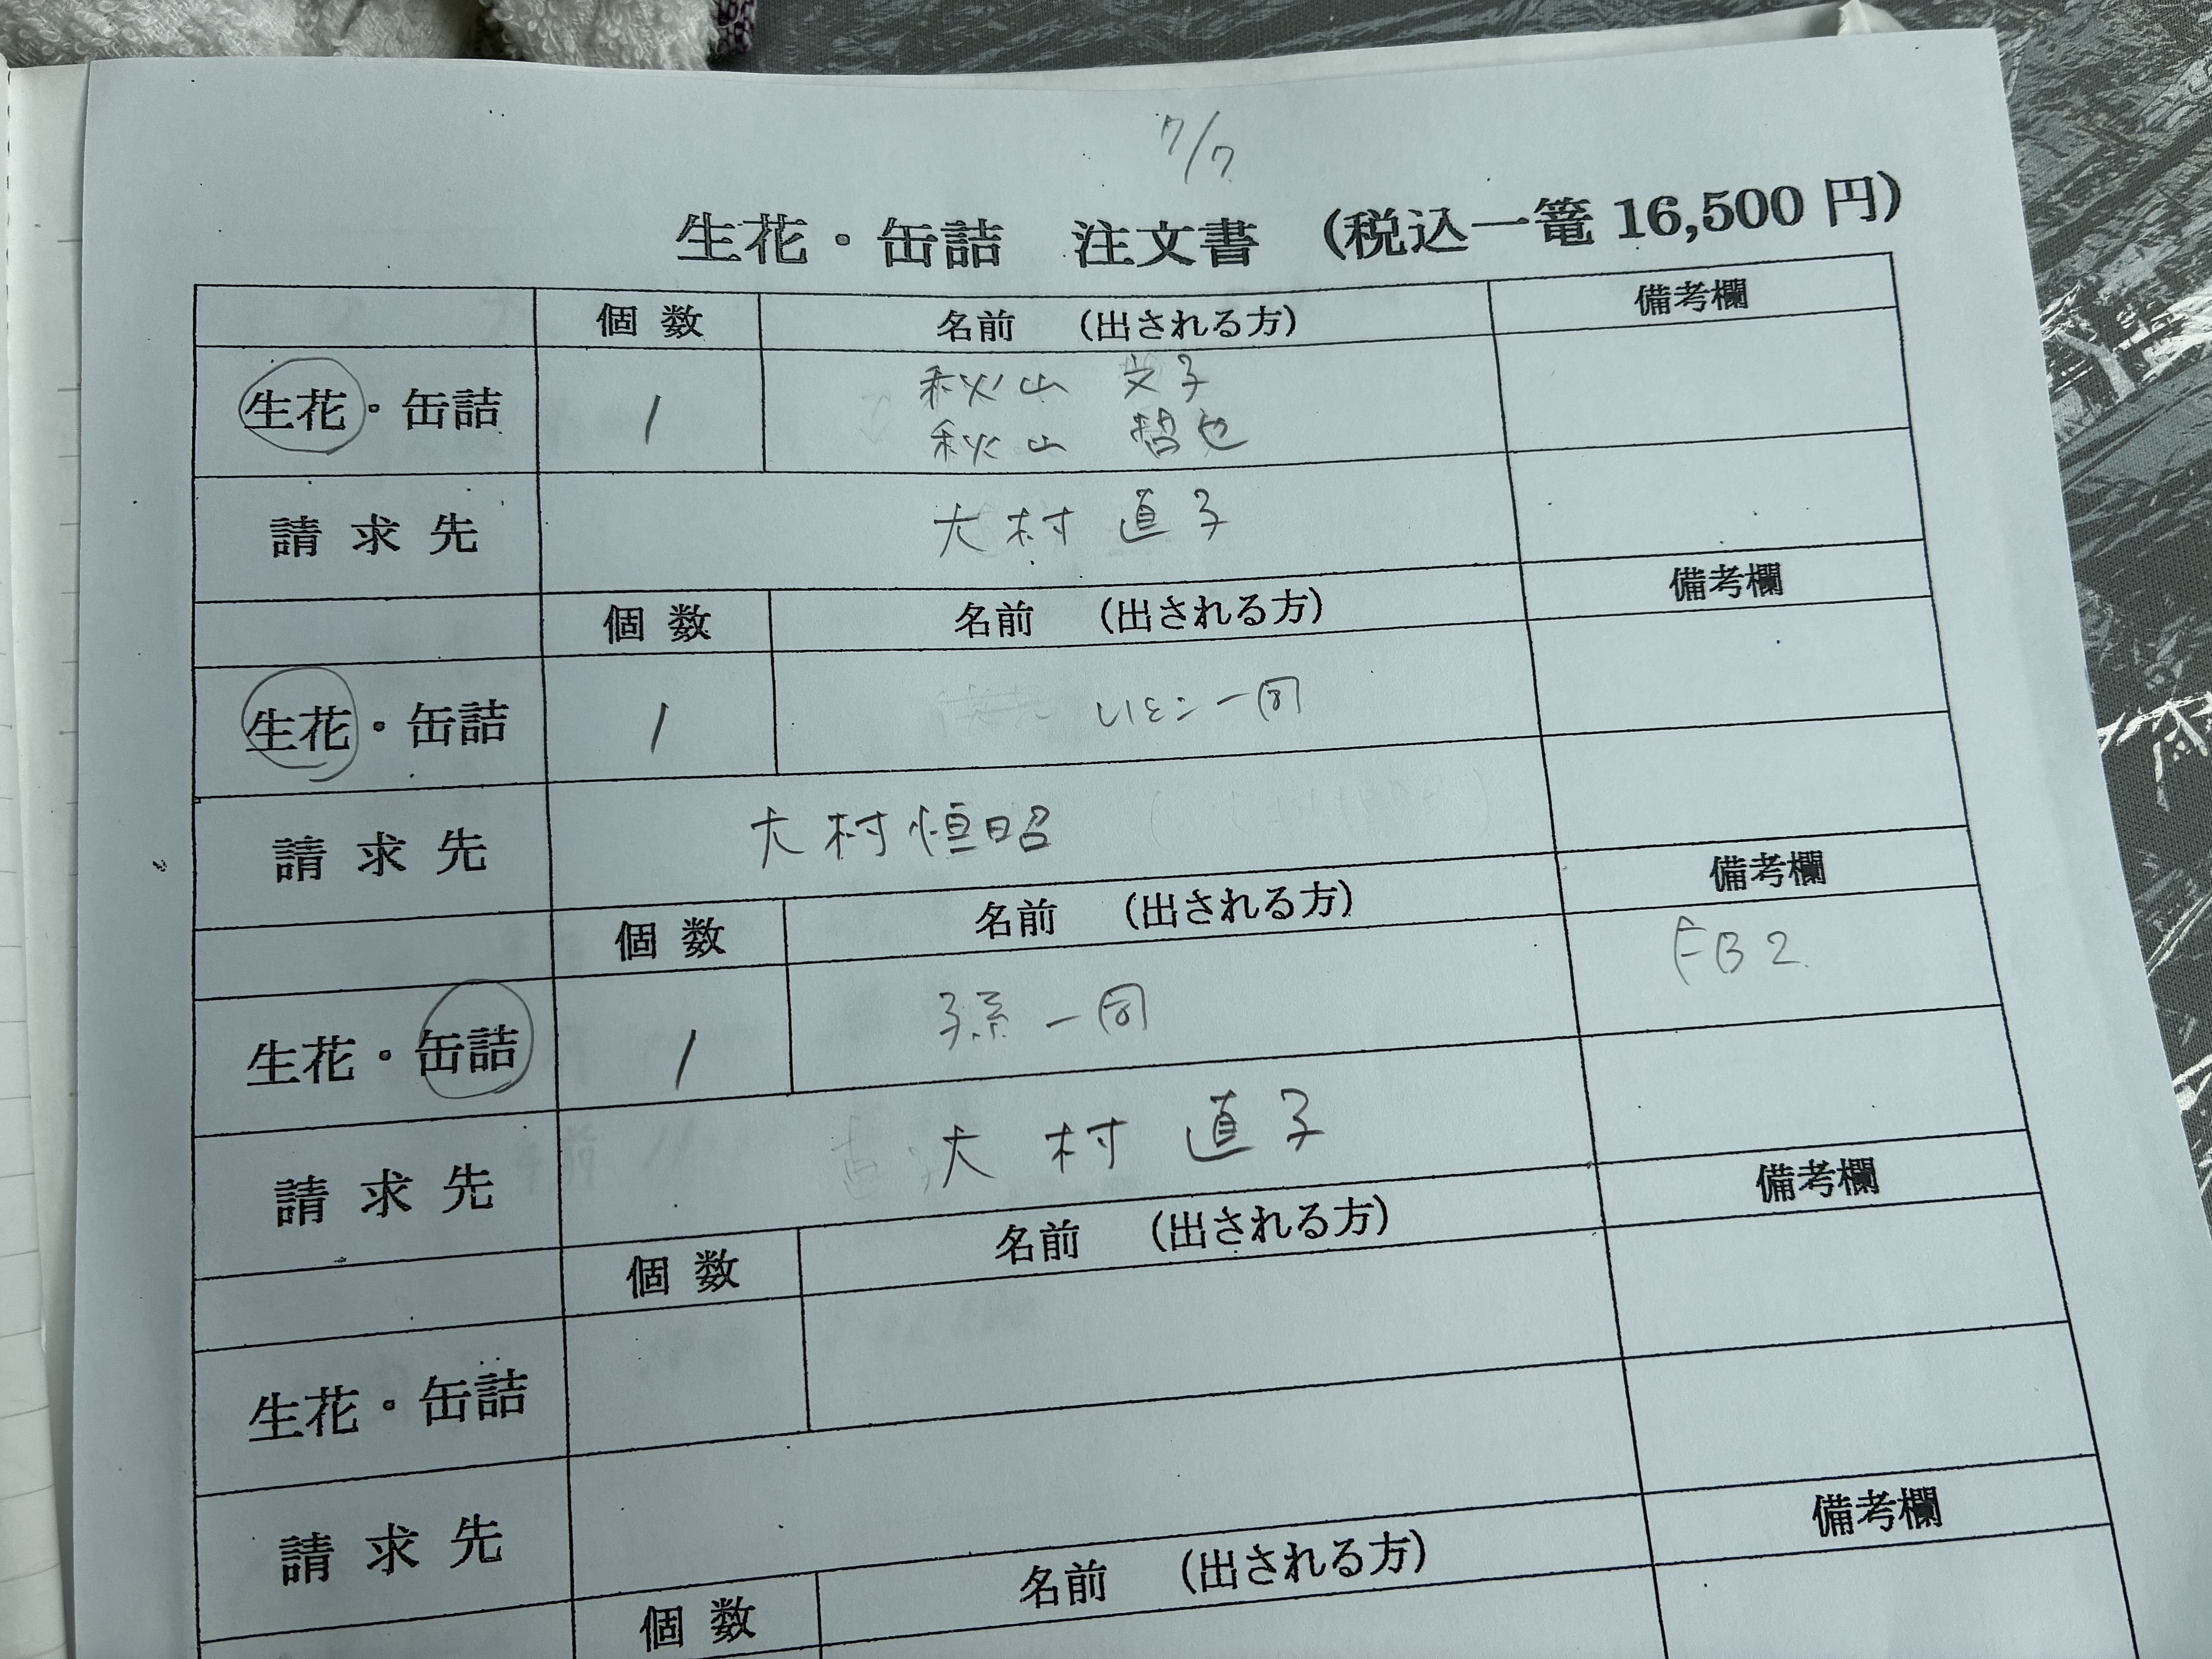 7/7
生花・缶詰 注文書 (税込一篭 16,500 円)
個 数 名前 (出される方) 備考欄
生花・缶詰 1 秋山 文子
秋山 哲也
請 求 先 大村 直子
個 数 名前 (出される方) 備考欄
生花・缶詰 1 いとこ一同
請 求 先 大村恒昭
個 数 名前 (出される方) 備考欄
生花・缶詰 1 孫一同 FB2
請 求 先 大村 直子
個 数 名前 (出される方) 備考欄
生花・缶詰
請 求 先
個 数 名前 (出される方) 備考欄